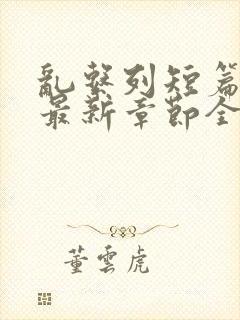 亂繫列短篇
最新章節全
董雲虎